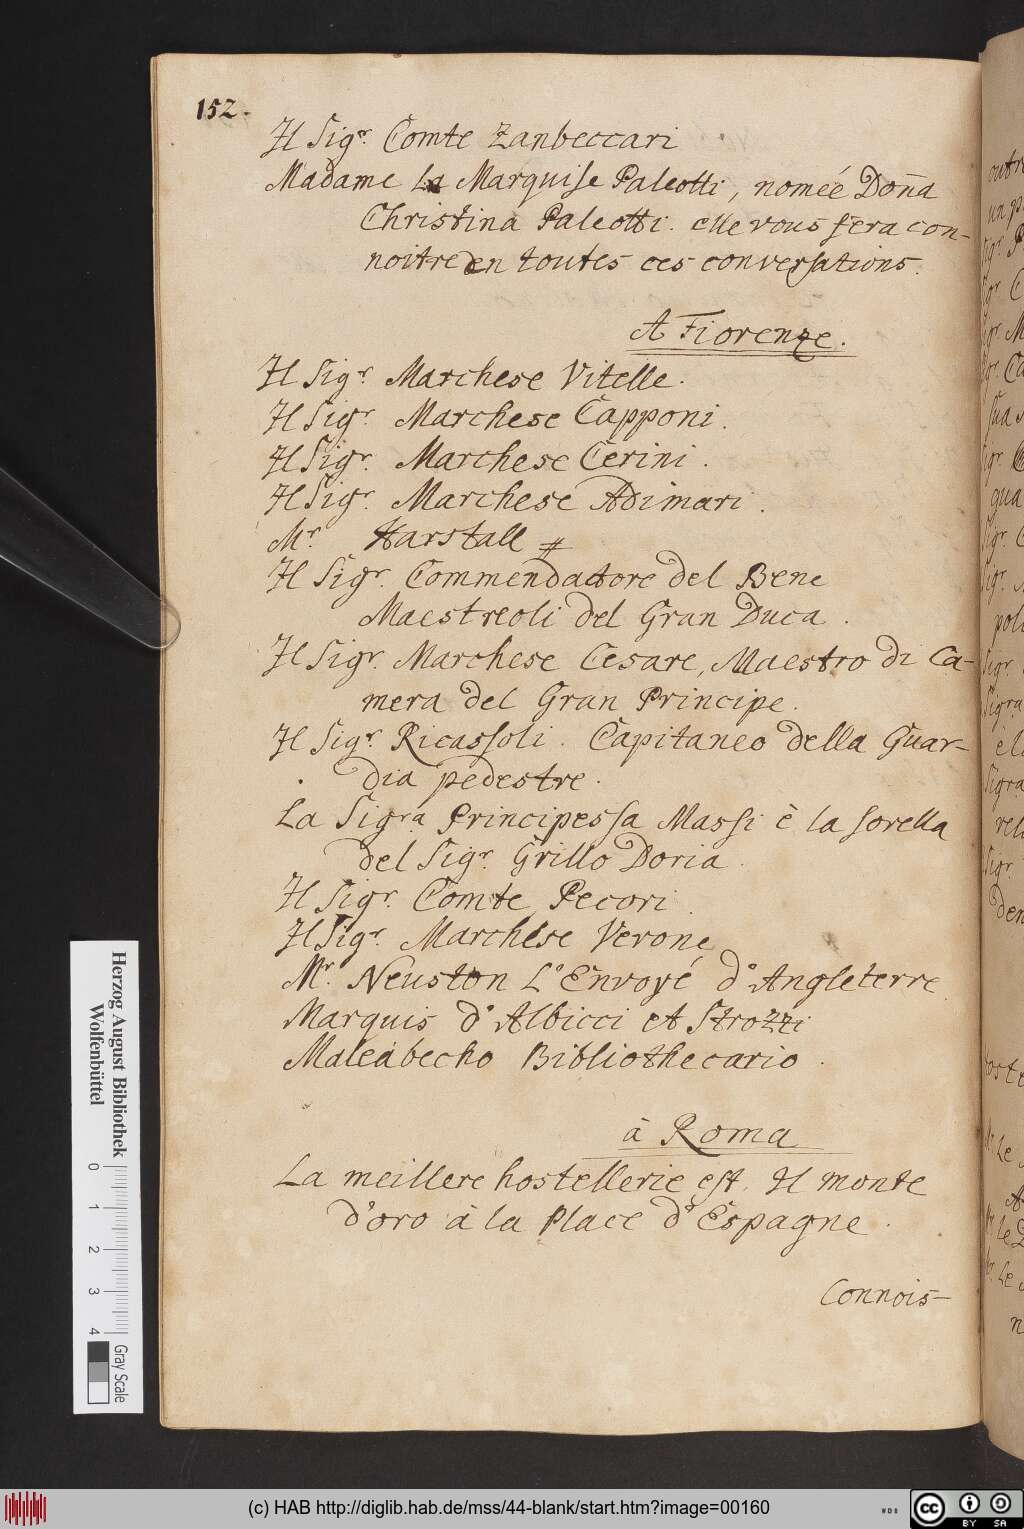 152.
Il Sigr. Comte Zanbeccari
Madame La Marquise Paleotti, nomeé Don̄a
Christina Paleotti. elle vous fera con-
noitre en toutes ces conversations.
A Fiorenze.
Il Sigr. Marchese Vitelle.
Il Sigr. Marchese Capponi.
Il Sigr. Marchese Cerini.
Il Sigr. Marchese Adimari.
Mr. Harstall #
Il Sigr. Commendatore del Bene
Maestreoli del Gran Duca.
Il Sigr. Marchese Cesare, Maestro di Ca-
mera del Gran Principe.
Il Sigr. Ricassoli. Capitaneo della Guar-
dia pedestre.
La Sigra Principessa Massi è la sorella
del Sigr. Grillo Doria.
Il Sigr. Comte Pecori.
Il Sigr. Marchese Verone
Mr. Neuston L'Envoyé d'Angleterre.
Marquis d'Albicci et Strozzi
Maleabecho Bibliothecario.
à Roma
La meillere hostellerie est. Il monte
d'oro à la Place d'Espagne.
Connois-
Herzog August Bibliothek
Wolfenbüttel
0 1 2 3 4
Gray Scale
(c) HAB http://diglib.hab.de/mss/44-blank/start.htm?image=00160
WDB
cc BY SA